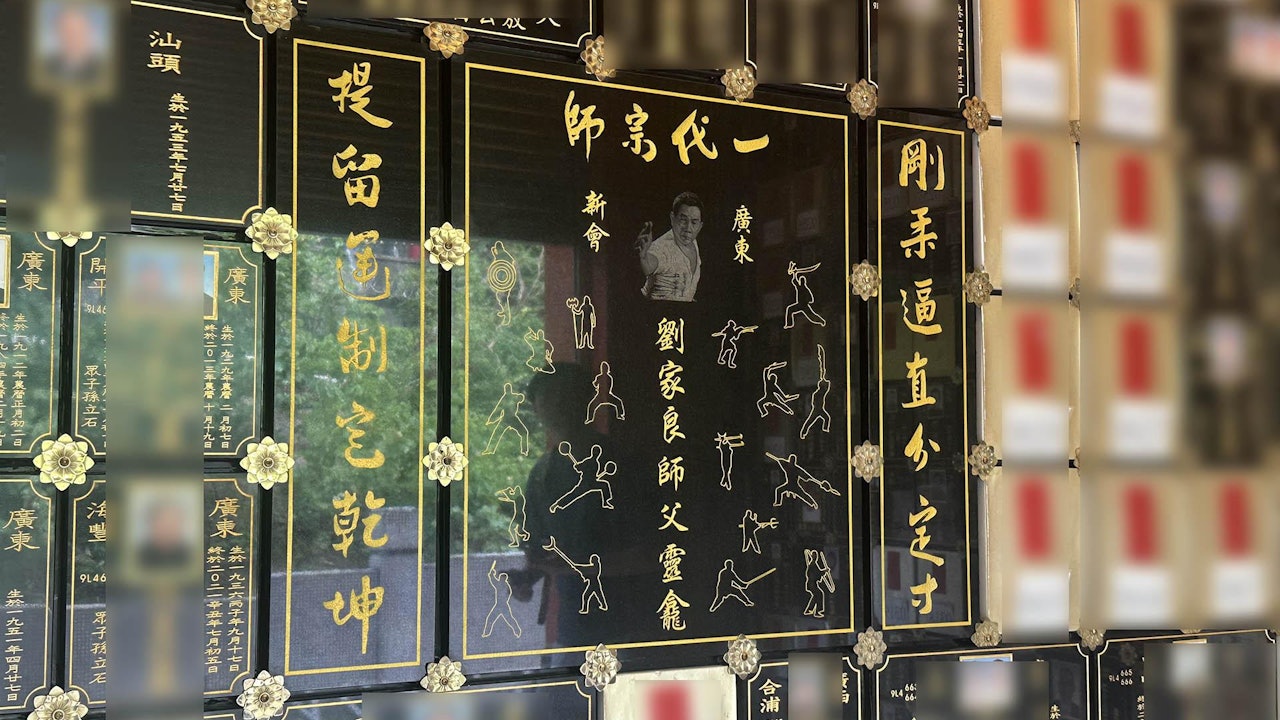 一代宗師
廣東
新會
劉家良師父靈龕
剛柔逼直分定寸
提留運制定乾坤
汕頭
生於一九五三年七月廿七日
廣東
生於一九二九年農曆二月初七日
終於二〇一三年農曆十月十九日
開平
9L46
眾子孫立石
廣東
廣東
終於二〇二一辛丑年七月初五日
9L46
眾子孫立石
廣東
生於一九五一年四月廿七日
合浦
9L4
665
666